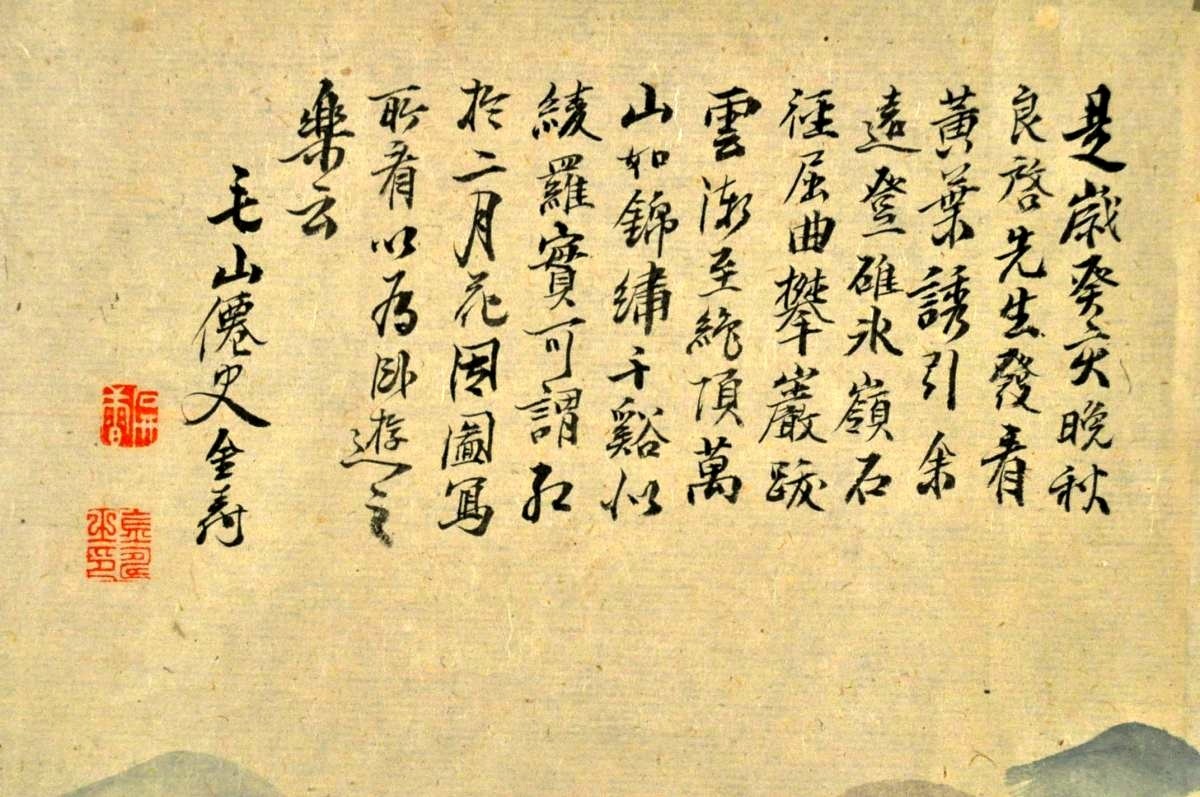 是歳癸亥晩秋
良啓先生發看
黄葉誘引余
遠登碓氷嶺石
徑屈曲攀巖踐
雲漸至絶頂萬
山如錦繍千谿似
綾羅實可謂紅
於二月花因圖寫
所看以為臥遊之
樂云
毛山僊史金壽